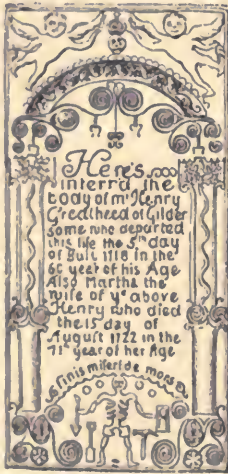 Here's
interr'd the
body of mr Henry
Greatheed of Gilder
some who departed
this life the 5th day
of 1718 in the
60 year of his Age
Also Martha the
wife of ye above
Henry who died
the 15 day of
August 1722 in the
71 year of her Age
finis